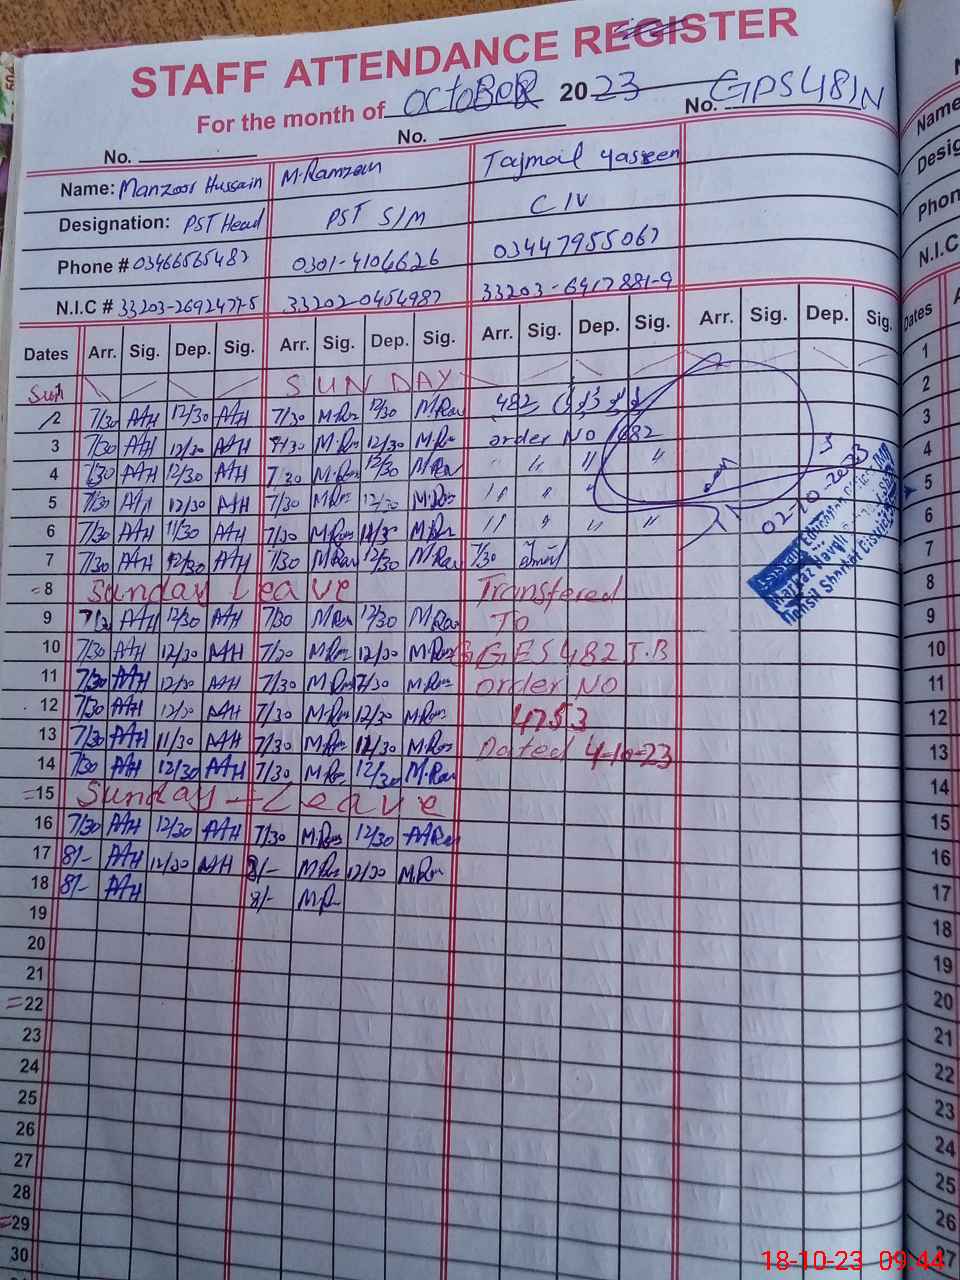 STAFF ATTENDANCE REGISTER
For the month of OCTOBER 2023
No. No. No. GPS481N
Name: Manzoor Hussain M.Ramzan Tajmal yaseen
Designation: PST Head PST S/M C IV
Phone # 03466565487 0301-4106626 03447955067
N.I.C # 33203-2692477-5 33202-0454987 33203-6917881-9
Dates Arr. Sig. Dep. Sig. Arr. Sig. Dep. Sig. Arr. Sig. Dep. Sig. Arr. Sig. Dep. Sig.
Sun 1 SUNDAY
2 7/30 AAH 12/30 AAH 7/30 M.Ram 12/30 M.Ram 482
3 7/30 AAH 12/30 AAH 7/30 M.Ram 12/30 M.Ram order No 1682
4 7/30 AAH 12/30 AAH 7/30 M.Ram 12/30 M.Ram " " " "
5 7/30 AAH 12/30 AAH 7/30 M.Ram 12/30 M.Ram " " "
02-10-2023
6 7/30 AAH 11/30 AAH 7/30 M.Ram 11/30 M.Ram " " " "
7 7/30 AAH 12/30 AAH 7/30 M.Ram 12/30 M.Ram 7/30
=8 Sunday Leave Transfered
9 7/30 AAH 12/30 AAH 7/30 M.Ram 12/30 M.Ram To
10 7/30 AAH 12/30 AAH 7/30 M.Ram 12/30 M.Ram GGES 482 J.B
11 7/30 AAH 12/30 AAH 7/30 M.Ram 12/30 M.Ram order NO
12 7/30 AAH 12/30 AAH 7/30 M.Ram 12/30 M.Ram 4753
13 7/30 AAH 11/30 AAH 7/30 M.Ram 11/30 M.Ram Dated 4-10-23
14 7/30 AAH 12/30 AAH 7/30 M.Ram 12/30 M.Ram
=15 Sunday - Leave
16 7/30 AAH 12/30 AAH 7/30 M.Ram 12/30
17 8/- AAH 12/30 AAH 8/- M.Ram 12/30 M.Ram
18 8/- AAH 8/- M.R
19
20
21
=22
23
24
25
26
27
28
=29
30
Name
Desig
Phon
N.I.C
Dates
1
2
3
4
5
6
7
8
9
10
11
12
13
14
15
16
17
18
19
20
21
22
23
24
25
26
18-10-23 09:44